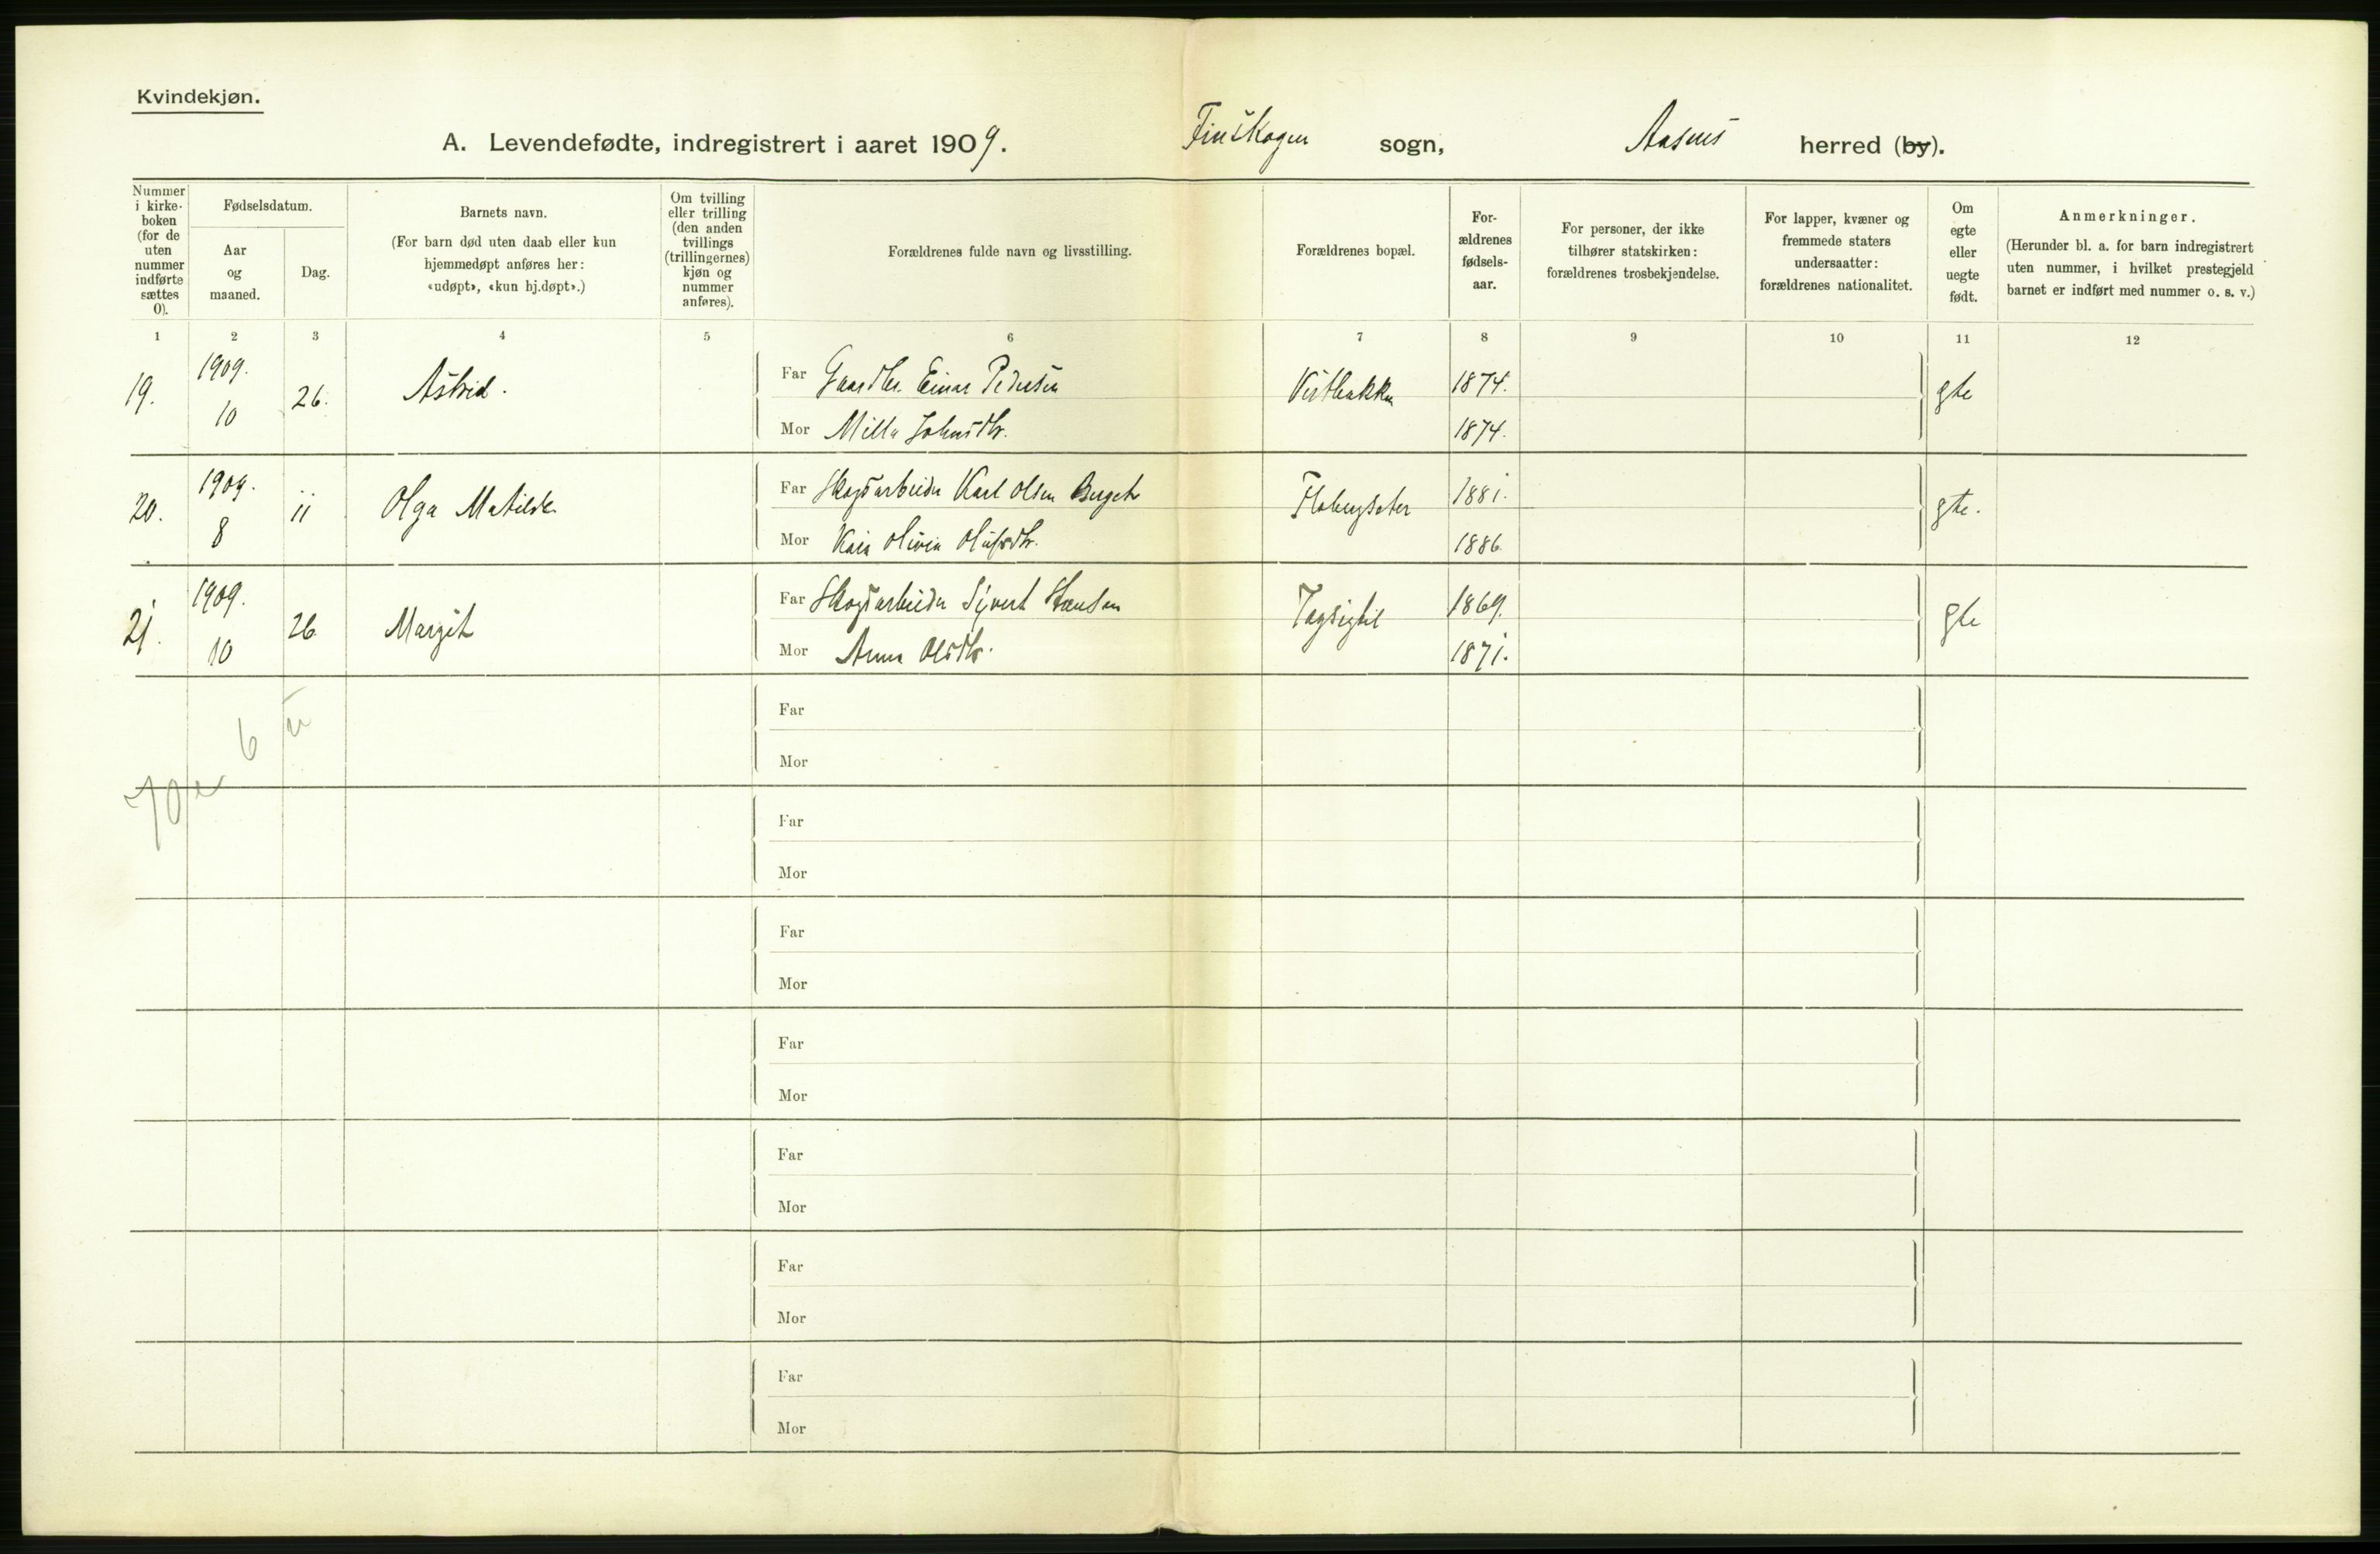 Kvindekjøn.
A. Levendefødte, indregistrert i aaret 1909. Finskogen sogn, Aasnes herred (by).
Nummer i kirke-boken (for de uten nummer indførte sættes 0).
Fødselsdatum.
Aar og maaned.
Dag.
Barnets navn.
(For barn død uten daab eller kun hjemmedøpt anføres her: «udøpt», «kun hj.døpt».)
Om tvilling eller trilling (den anden tvillings (trillingernes) kjøn og nummer anføres).
Forældrenes fulde navn og livsstilling.
Forældrenes bopæl.
For-ældrenes fødsels-aar.
For personer, der ikke tilhører statskirken: forældrenes trosbekjendelse.
For lapper, kvæner og fremmede staters undersaatter: forældrenes nationalitet.
Om egte eller uegte født.
Anmerkninger.
(Herunder bl. a. for barn indregistrert uten nummer, i hvilket prestegjeld barnet er indført med nummer o. s. v.)
1 2 3 4 5 6 7 8 9 10 11 12
19. 1909. 10 26. Astrid. Far Gaardbr. Einar Pedersen Vestbakken 1874. gte
Mor Milla Johnsdtr. 1874.
20. 1909. 8 11 Olga Matilde Far Skogsarbeider Karl Olsen Berget Flobergseter 1881. gte.
Mor Kaia Olivia Olufsdtr. 1886.
21. 1909. 10 26 Margit Far Skogsarbeider Syvert Hansen 1869. gte
Mor Anna Olsdtr. 1871.
6
Far
Mor
Far
Mor
Far
Mor
Far
Mor
Far
Mor
Far
Mor
Far
Mor